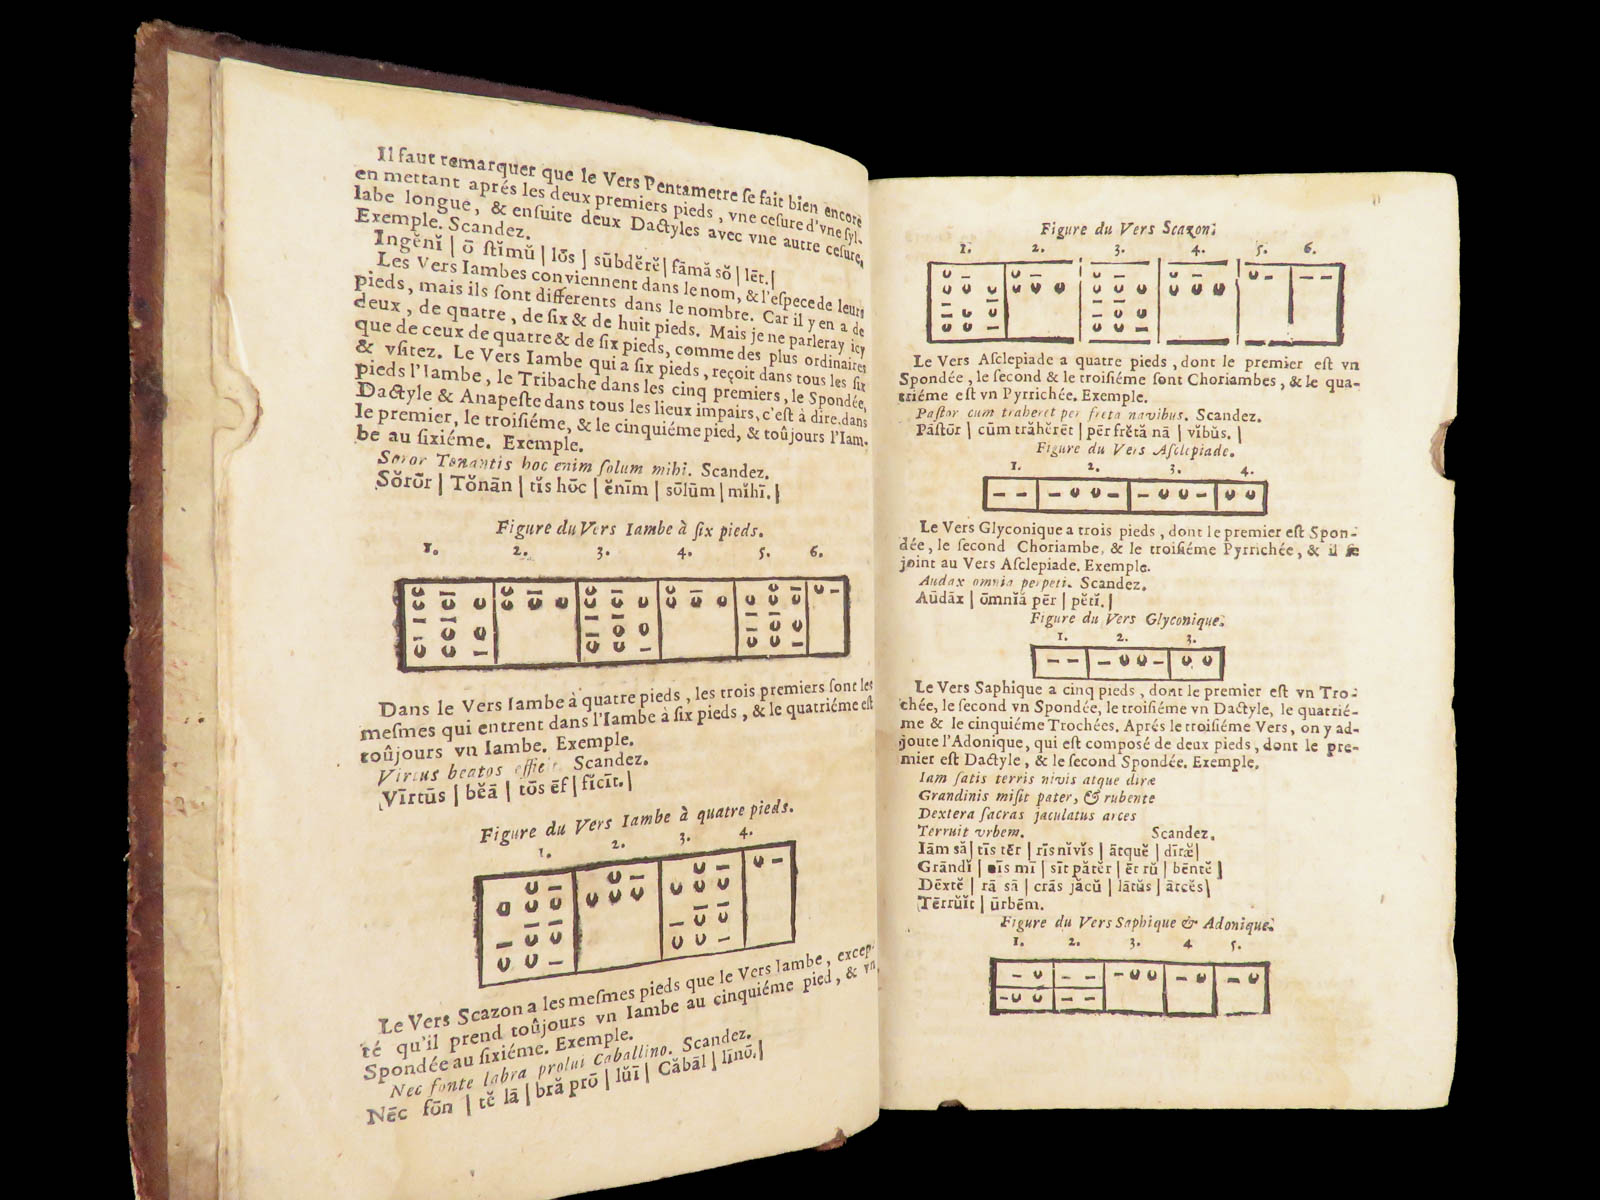 Il faut remarquer que le Vers Pentametre ſe fait bien encore
en mettant aprés les deux premiers pieds, vne ceſure d'vne ſyl-
labe longue, & enſuite deux Dactyles avec vne autre ceſure.
Exemple. Scandez.
Ingĕnĭ | ō ſtĭmŭ | lōs | sūbdĕrĕ | fāmă sŏ | lēt. |
Les Vers Iambes conviennent dans le nom, & l'eſpece de leurs
pieds, mais ils ſont differents dans le nombre. Car il y en a de
deux, de quatre, de ſix & de huit pieds. Mais je ne parleray icy
que de ceux de quatre & de ſix pieds, comme des plus ordinaires
& vſitez. Le Vers Iambe qui a ſix pieds, reçoit dans tous les ſix
pieds l'Iambe, le Tribache dans les cinq premiers, le Spondée,
Dactyle & Anapeſte dans tous les lieux impairs, c'eſt à dire, dans
le premier, le troiſiéme, & le cinquiéme pied, & toûjours l'Iam-
be au ſixiéme. Exemple.
Soror Tonantis hoc enim ſolum mihi. Scandez.
Sŏrōr | Tŏnān | tĭs hōc | ĕnīm | sōlūm | mĭhī. |
Figure du Vers Iambe à ſix pieds.
1. 2. 3. 4. 5. 6.
Dans le Vers Iambe à quatre pieds, les trois premiers ſont les
meſmes qui entrent dans l'Iambe à ſix pieds, & le quatriéme eſt
toûjours vn Iambe. Exemple.
Virtus beatos effic Scandez.
Vīrtūs | bĕā | tōs ēf | fĭcīt. |
Figure du Vers Iambe à quatre pieds.
1. 2. 3. 4.
Le Vers Scazon a les meſmes pieds que le Vers Iambe, excep-
té qu'il prend toûjours vn Iambe au cinquiéme pied, & vn
Spondée au ſixiéme. Exemple.
Nec fonte labra prolui Caballino. Scandez.
Nēc fōn | tĕ lā | bră prō | lŭī | Căbāl | līnō. |
Figure du Vers Scazon.
1. 2. 3. 4. 5. 6.
Le Vers Aſclepiade a quatre pieds, dont le premier eſt vn
Spondée, le ſecond & le troiſiéme ſont Choriambes, & le qua-
triéme eſt vn Pyrrichée. Exemple.
Paſtor cum traheret per freta navibus. Scandez.
Pāſtōr | cūm trăhĕrēt | pēr frĕtă nā | vĭbŭs. |
Figure du Vers Aſclepiade.
1. 2. 3. 4.
Le Vers Glyconique a trois pieds, dont le premier eſt Spon-
dée, le ſecond Choriambe, & le troiſiéme Pyrrichée, & il ſe
joint au Vers Aſclepiade. Exemple.
Audax omnia perpeti. Scandez.
Aūdāx | ōmnĭă pēr | pĕtĭ. |
Figure du Vers Glyconique.
1. 2. 3.
Le Vers Saphique a cinq pieds, dont le premier eſt vn Tro-
chée, le ſecond vn Spondée, le troiſiéme vn Dactyle, le quatrié-
me & le cinquiéme Trochées. Aprés le troiſiéme Vers, on y ad-
joute l'Adonique, qui eſt compoſé de deux pieds, dont le pre-
mier eſt Dactyle, & le ſecond Spondée. Exemple.
Iam ſatis terris nivis atque diræ
Grandinis miſit pater, & rubente
Dextera ſacras jaculatus arces
Terruit vrbem. Scandez.
Iām să | tīs tēr | rīs nĭvĭs | ātquĕ | dīræ |
Grāndĭ | nīs mī | sīt pătĕr | ēt rŭ | bēntĕ |
Dēxtĕ | rā sā | crās jăcŭ | lātŭs | ārcĕs |
Tērrŭĭt | ūrbēm.
Figure du Vers Saphique & Adonique.
1. 2. 3. 4 5.